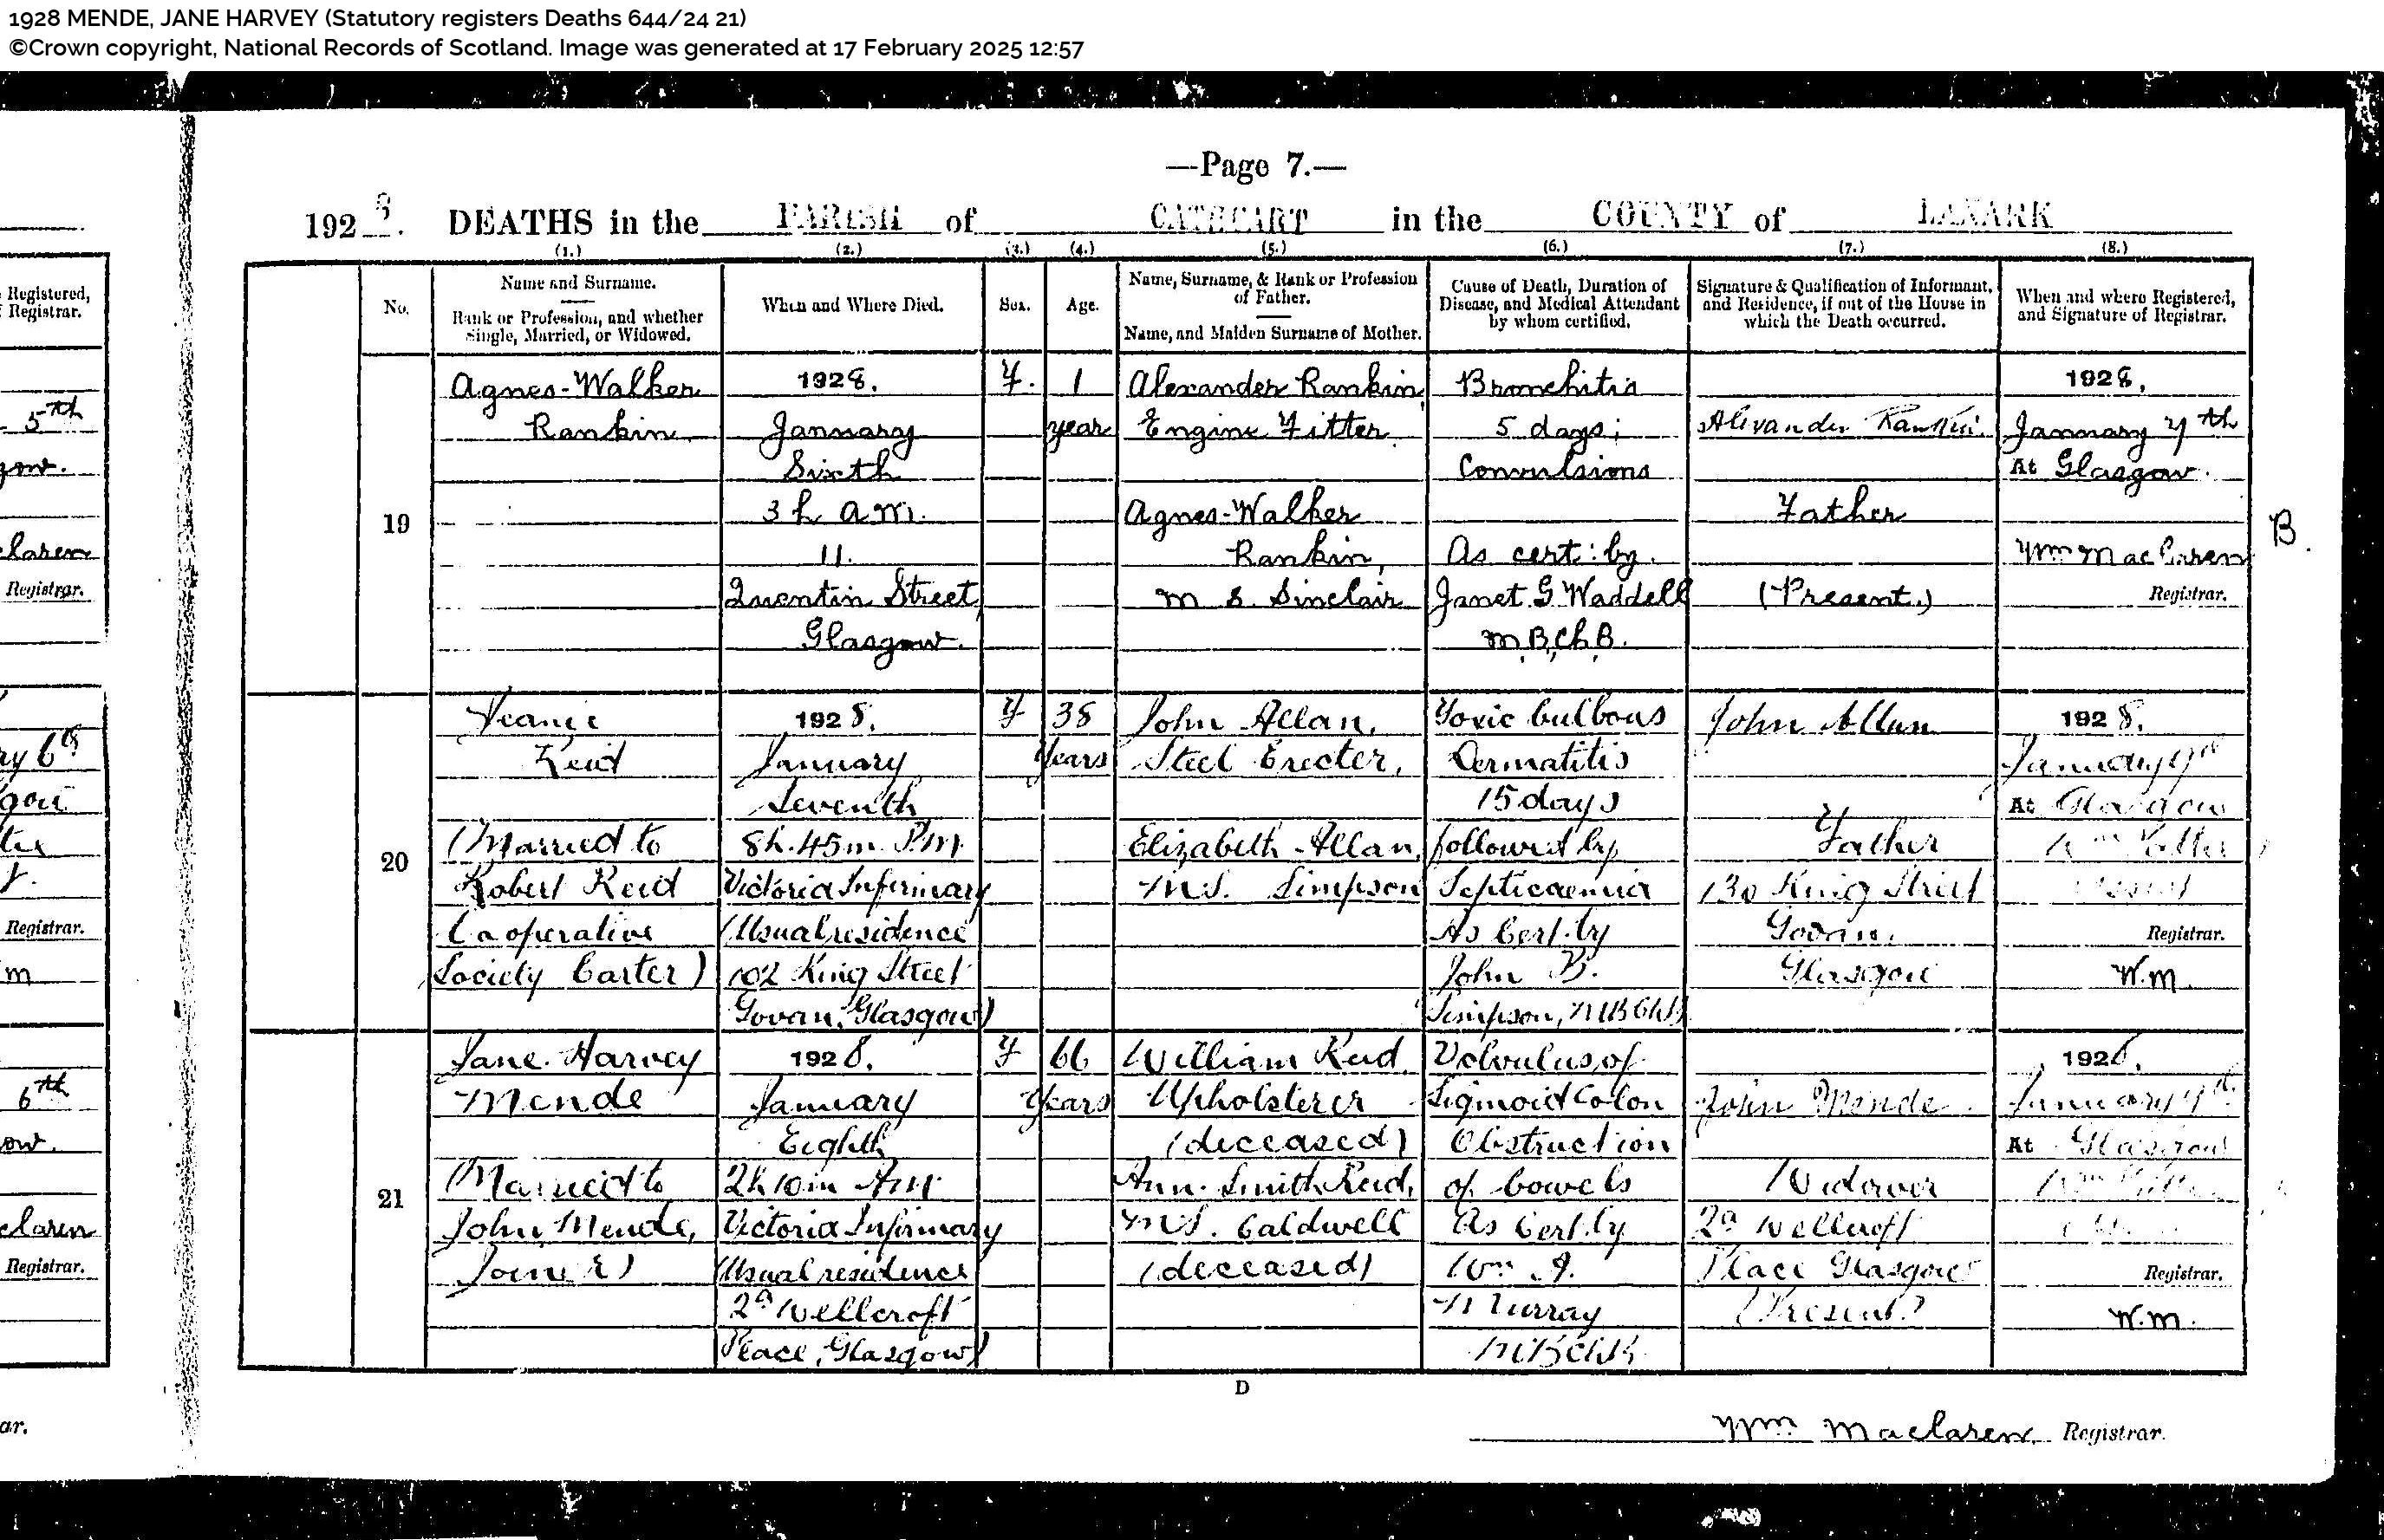 1928 MENDE, JANE HARVEY (Statutory registers Deaths 644/24 21)
©Crown copyright, National Records of Scotland. Image was generated at 17 February 2025 12:57
—Page 7.—
1928. DEATHS in the PARISH of CATHCART in the COUNTY of LANARK
(1.) (2.) (3.) (4.) (5.) (6.) (7.) (8.)
No.
Name and Surname.
Rank or Profession, and whether
Single, Married, or Widowed.
When and Where Died.
Sex.
Age.
Name, Surname, & Rank or Profession
of Father.
Name, and Maiden Surname of Mother.
Cause of Death, Duration of
Disease, and Medical Attendant
by whom certified.
Signature & Qualification of Informant,
and Residence, if out of the House in
which the Death occurred.
When and where Registered,
and Signature of Registrar.
19
Agnes-Walker
Rankin
1928.
January
Sixth
3 h a.m.
11.
Quentin Street
Glasgow.
F.
1
year
Alexander Rankin,
Engine Fitter.
Agnes-Walker
Rankin,
M.S. Sinclair
Bronchitis
5 days;
Convulsions
As cert: by.
Janet G Waddell
M.B, Ch.B.
Alexander Rankin.
Father
(Present.)
1928.
January 7th
At Glasgow.
Wm MacLaren
Registrar.
B.
20
Jeanie
Reid
(Married to
Robert Reid
Cooperative
Society Carter)
1928.
January
Seventh
8h. 45m. P.M.
Victoria Infirmary
(Usual residence
102 King Street
Govan, Glasgow)
F
38
Years
John Allan,
Steel Erecter,
Elizabeth Allan,
M.S. Simpson
Toxic bulbous
Dermatitis
15 days
followed by
Septicaemia
As Cert. by
John B.
Simpson, MBChB
John Allan
Father
130 King Street
Govan.
Glasgow
1928.
January 9th
At Glasgow
Registrar.
W.M.
21
Jane Harvey
Mende
(Married to
John Mende,
Joiner)
1928.
January
Eighth
2h 10m A.M.
Victoria Infirmary
(Usual residence
2a Wellcroft
Place, Glasgow)
F
66
Years
William Reid,
Upholsterer
(deceased)
Ann Smith Reid,
M.S. Caldwell
(deceased)
Volvulus of
Sigmoid Colon
Obstruction
of bowels
As Cert. by
Wm A.
Murray
MBChB
John Mende.
Widower
2a Wellcroft
Place Glasgow
(Present)
1928.
January 9th
At Glasgow
Registrar.
W.M.
D
Wm MacLaren Registrar.